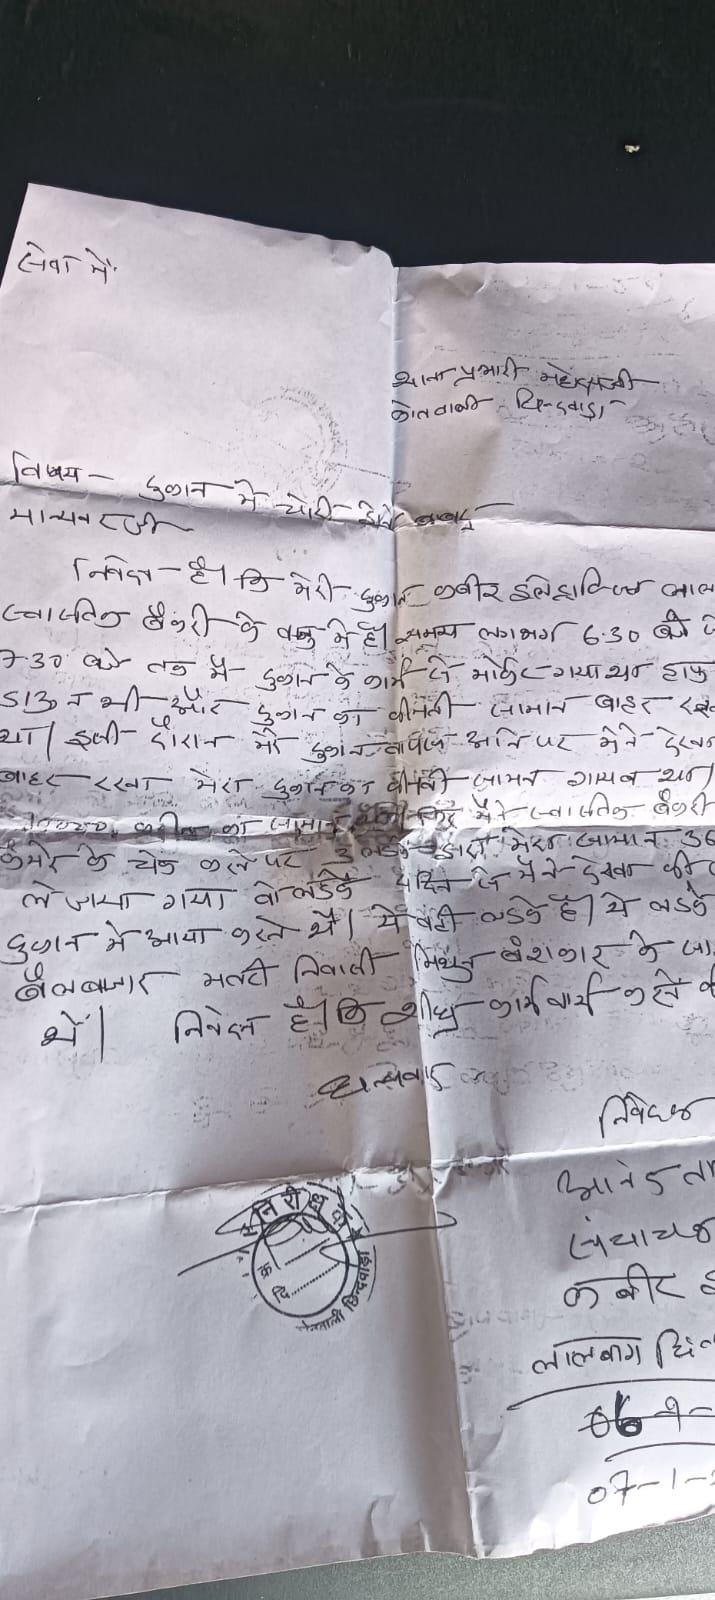 सेवा में
थाना प्रभारी महोदयजी
कोतवाली छिन्दवाड़ा
विषय - दुकान में चोरी होने बाबद्
मान्यवरजी
निवेदन है। कि मेरी दुकान कबीर इलेक्ट्रिकल्स लाल
स्वास्तिक बैकरी के बाजु में है। समय लगभग 6.30 बजे
7.30 बजे तक मैं दुकान के कार्य से मार्केट गया था हाफ
डाउन थी और दुकान का कीमती सामान बाहर रख
था। इसी दौरान मेरे दुकान वापस आने पर मैने देखा
बाहर रखा मेरा दुकान का कीमती सामान गायब था।
का सामान फिर मैने स्वास्तिक बैकरी
कैमेरे के चेक करने पर 3 लडके द्वारा मेरा सामान
ले जाया गया वो लडके दिन से मैने देखा की
दुकान में आया करते थे। ये वही लडके है। ये लडके
बैलबाजार भट्टी निवासी मिथुन बंशकार के
थे। निवेदन है। कि शीघ्र कार्यवाही करने
धन्यवाद
निवेदक
आनंद
संचालक
कबीर
लालबाग
06
07-1-
निरीक्षक
क्र.
दि.
कोतवाली छिन्दवाड़ा